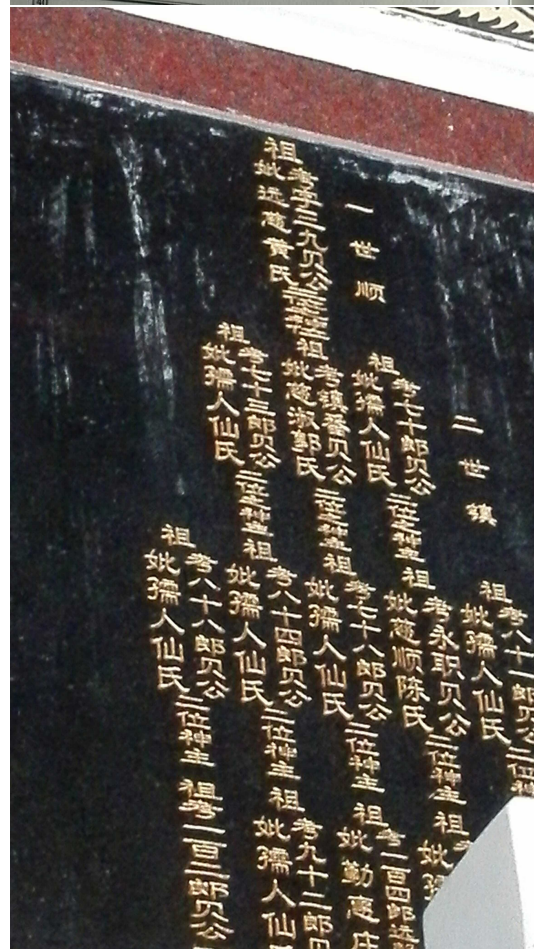 一世顺
祖
考字三九贝公
妣远慈黄氏
二位神主
二世镇
祖
考七十郎贝公
妣孺人仙氏
二位神主
祖
考镇蕃贝公
妣慈淑郭氏
二位神主
祖
考七十三郎贝公
妣孺人仙氏
二位神主
祖
考八十一郎贝公
妣孺人仙氏
二位神
祖
考永职贝公
妣慈顺陈氏
二位神主
祖
考七十八郎贝公
妣孺人仙氏
二位神主
祖
考八十四郎贝公
妣孺人仙氏
二位神主
祖
考八十八郎贝公
妣孺人仙氏
二位神主
祖
妣
祖
考一百四郎远
妣勤惠庄
祖
考九十二郎贝
妣孺人仙
祖考一百二郎贝公